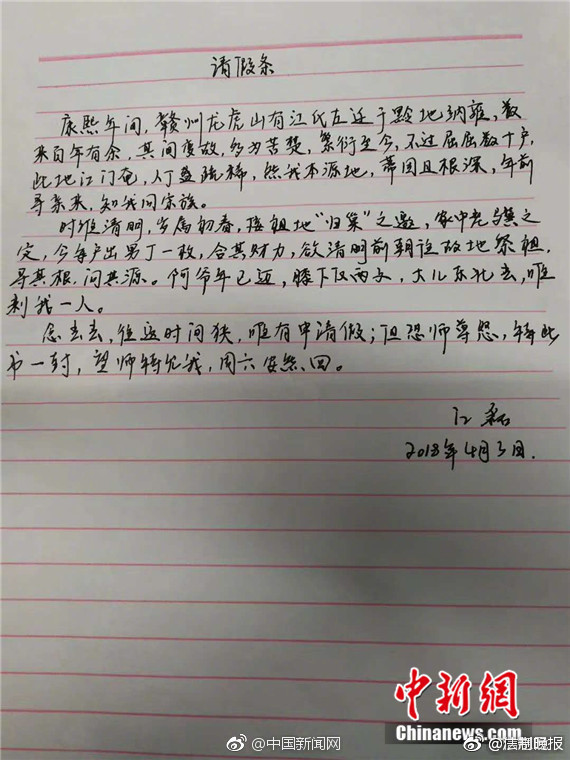 请假条
康熙年间，赣州龙虎山有江氏左迁于黔地纳雍，数
来百年有余，其间变故，多为苦楚，繁衍至今，不过屈屈数十户，
此地江门奄，人丁益疏稀，然我本源地，蒂固且根深，年前
寻亲来，知我同宗族。
时维清明，岁属初春，接祖地“归巢”之邀，家中老与冀之
定，今每户出男丁一枚，合其财力，欲清明前朝往故地祭祖，
寻其根，问其源。阿爷年已迈，膝下仅两支，大儿东北去，唯
剩我一人。
念去去，往返时间狭，唯有申请假；但恐师尊怒，特此
书一封，望师特允我，周六安然回。
江磊
2018年4月3日.
中新网
Chinanews.com
@中国新闻网
@法制晚报